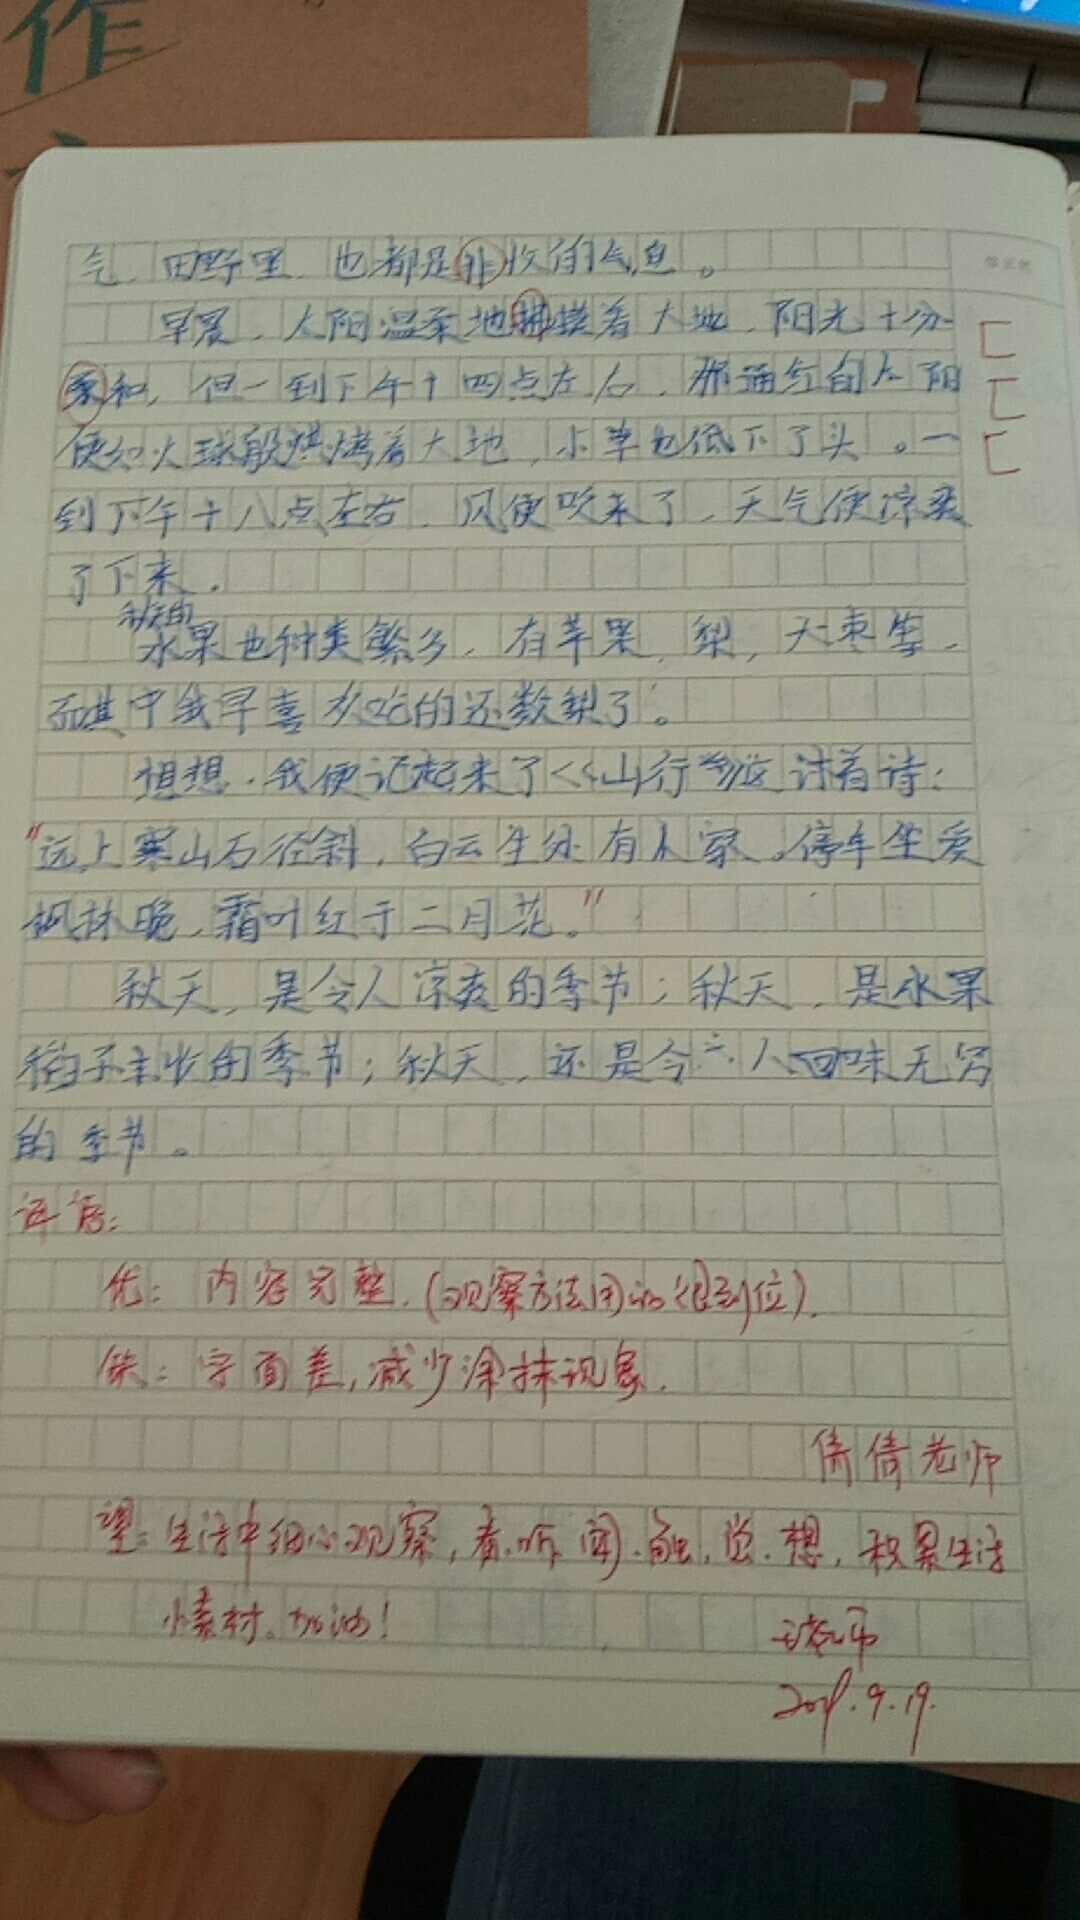 作
气、田野里、也都是非收的气息。
早晨，太阳温柔地拂摸着大地，阳光十分
柔和，但一到下午十四点左右，那通红的太阳
便如火球般烘烤着大地，小草也低下了头。一
到下午十八点左右，风便吹来了，天气便凉爽
了下来。
秋天的
水果也种类繁多，有苹果，梨，大枣等，
而其中我早喜欢吃的还数梨了。
想想，我便记起来了《山行》这首诗：
"远上寒山石径斜，白云生处有人家。停车坐爱
枫林晚，霜叶红于二月花。"
秋天，是令人凉爽的季节；秋天，是水果
稻子丰收的季节；秋天，还是令人回味无穷
的季节。
评语：
优：内容完整.(观察方法用的很到位).
缺：字面差,减少涂抹现象.
倩倩老师
望：生活中细心观察,看.听.闻.触.觉.想,积累生活
小素材。加油!
9.19.